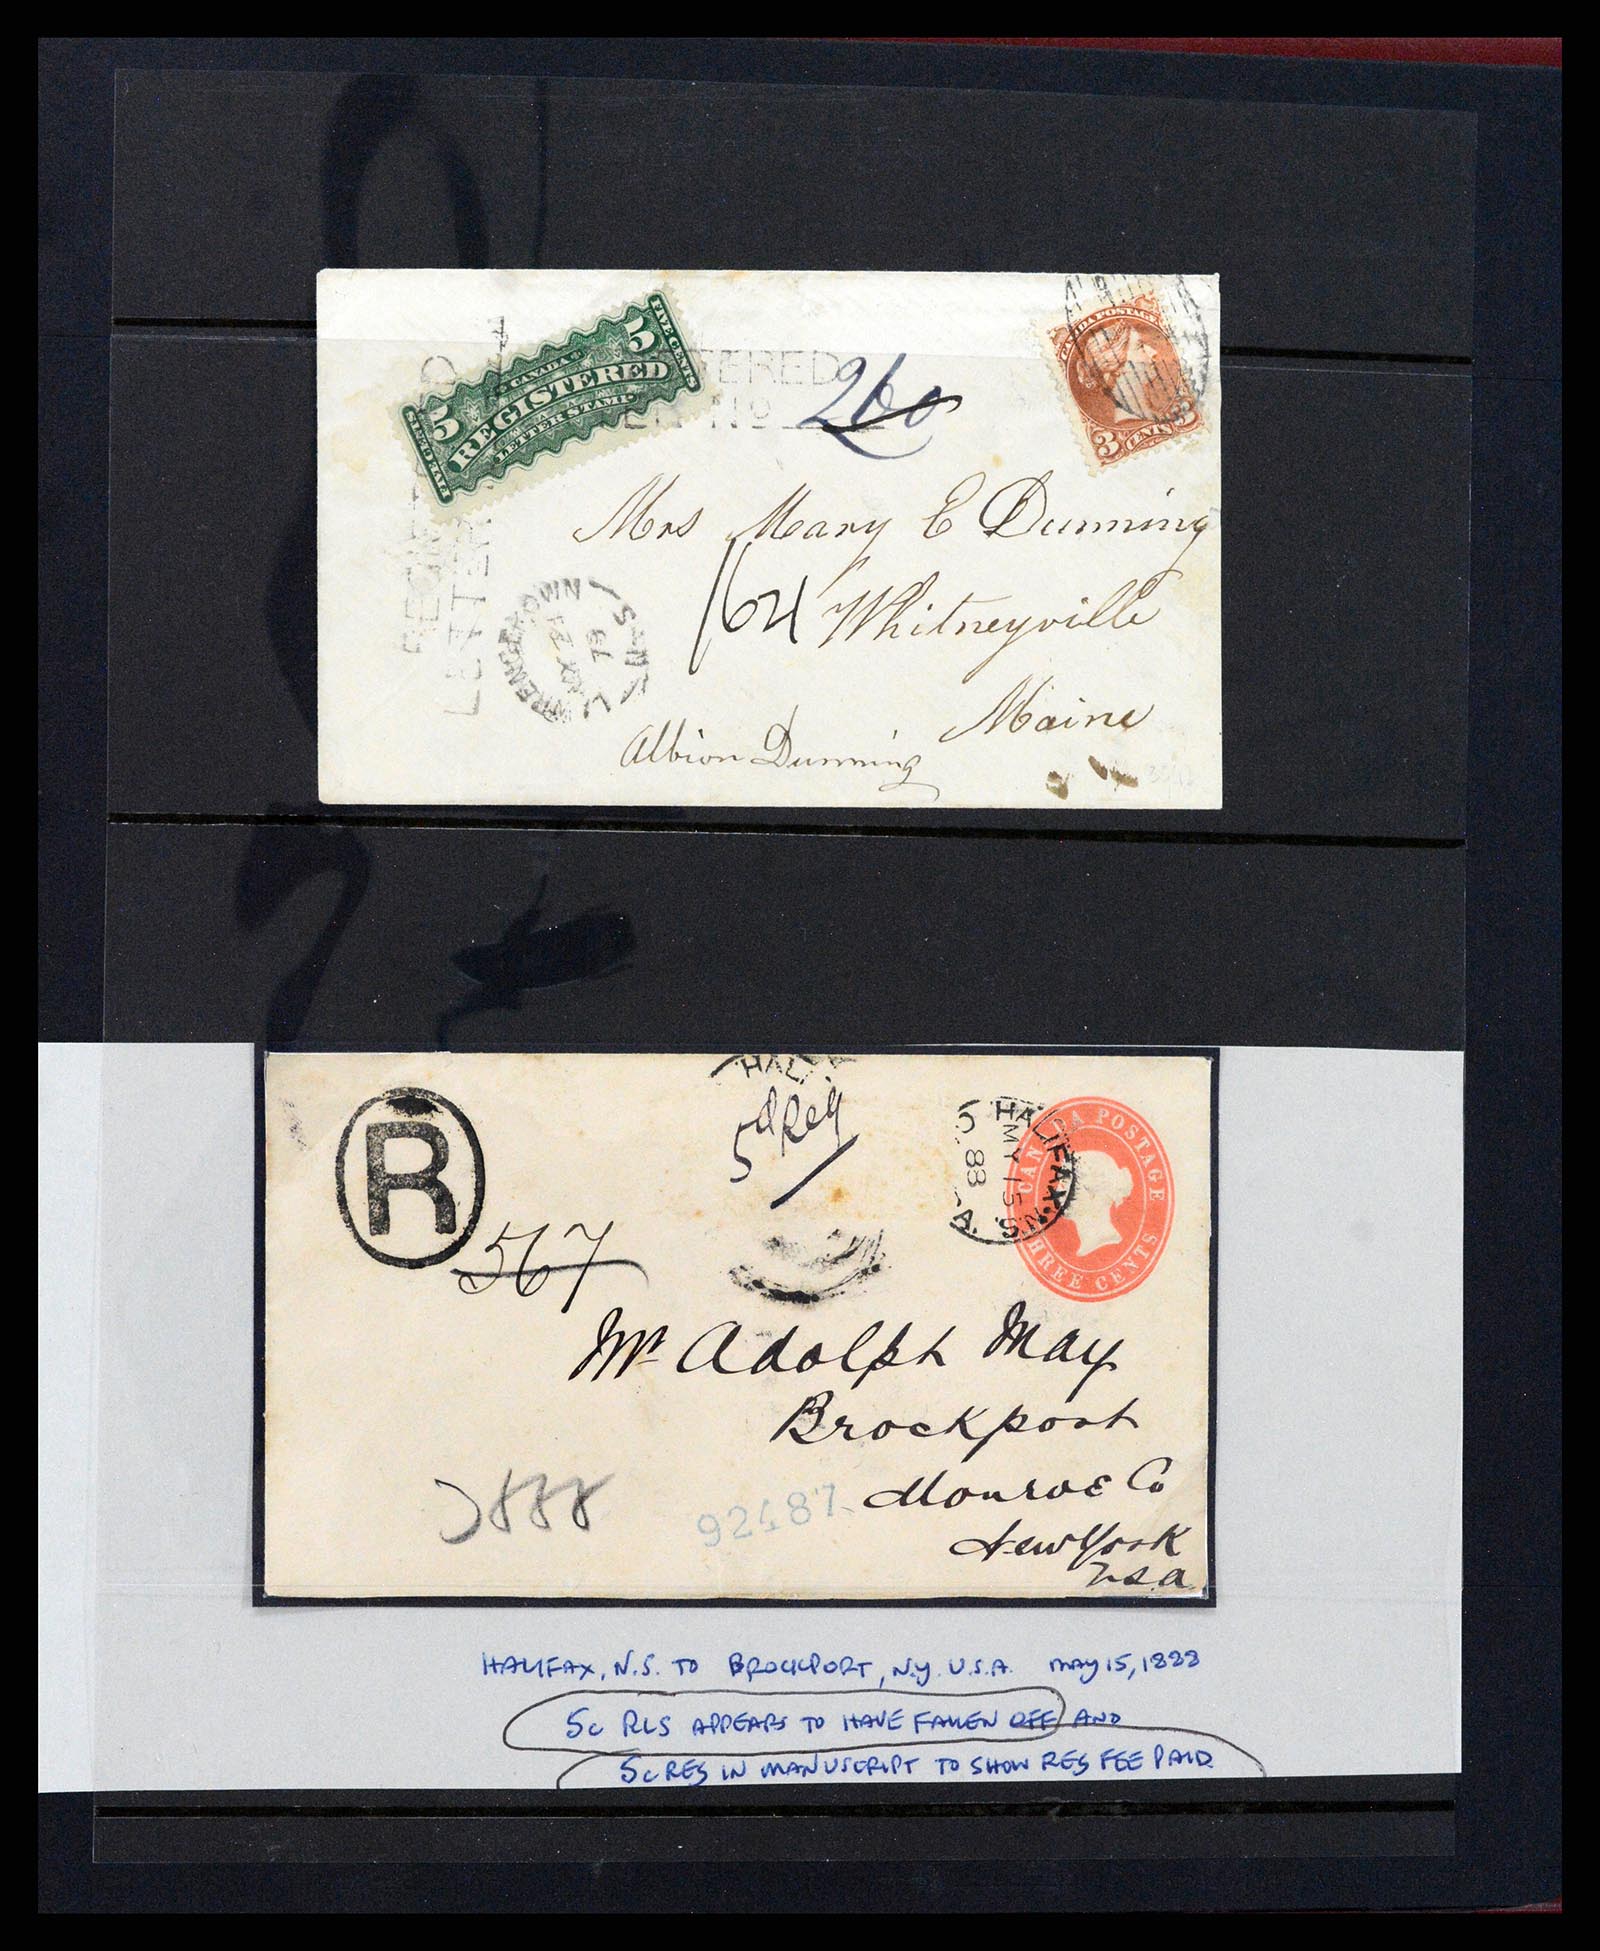 5 CANADA 5
REGISTERED
LETTER STAMP
FIVE CENTS
FIVE CENTS
TERED
No
260
CANADA POSTAGE
3 CENTS 3
REGI
LETTER
Mrs Mary E Dunning
164 Whitneyville
Maine
LAWRENCETOWN N.S
79
Albion Dunning
R
567
HALI
5 Reg
HALIFAX N.S. CANADA
MY 15
88
CANADA POSTAGE
THREE CENTS
Mr Adolph May
Brockport
Monroe Co
New York
U.S.A.
92487
HALIFAX, N.S. TO BROCKPORT, N.Y. U.S.A. MAY 15, 1888
5c RLS APPEARS TO HAVE FALLEN OFF AND
5c REG IN MANUSCRIPT TO SHOW REG FEE PAID